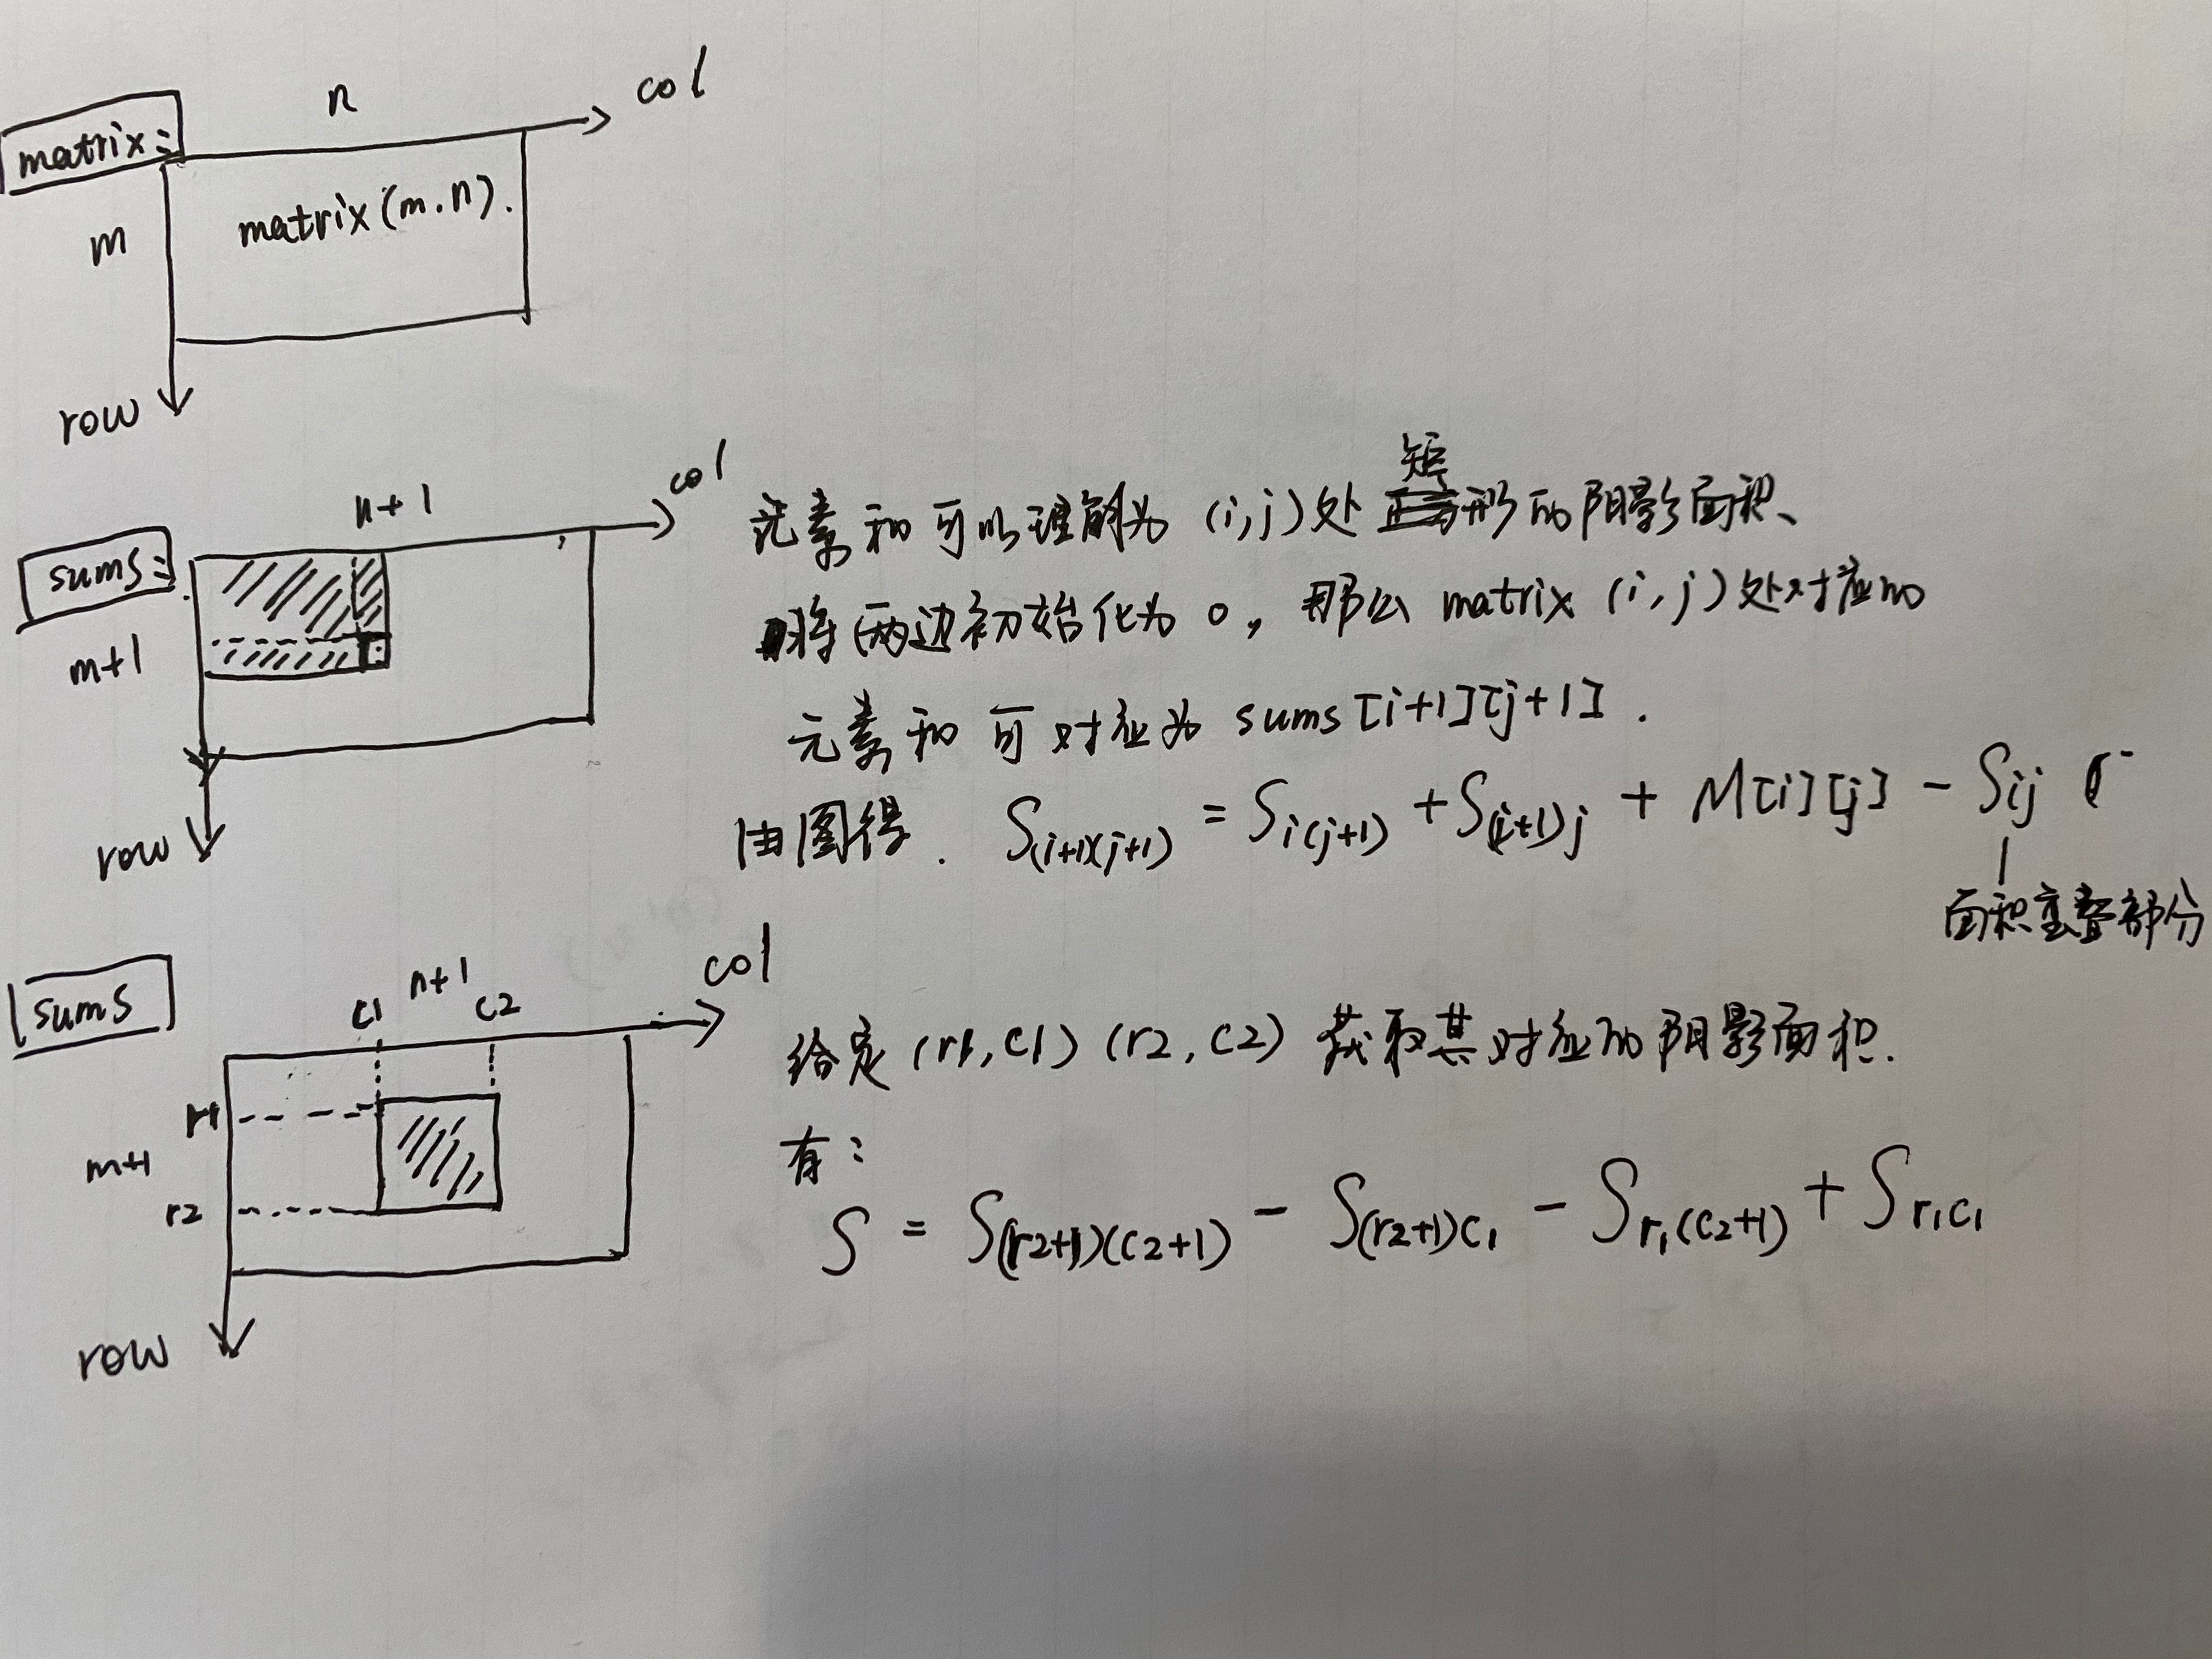 n
col
matrix:
matrix(m.n).
m
row
n+1
col
sums:
m+1
row
元素和可以理解为 (i,j)处 矩形的阴影面积、
将两边初始化为 0, 那么 matrix (i,j)处对应的
元素和可对应为 sums[i+1][j+1].
由图得. S(i+1)(j+1) = Si(j+1) + S(i+1)j + M[i][j] - Sij
面积重叠部分
sums
c1 n+1 c2
col
r1
m+1
r2
row
给定 (r1,c1) (r2,c2) 获取其对应的阴影面积.
有:
S = S(r2+1)(c2+1) - S(r2+1)c1 - Sr1(c2+1) + Sr1c1